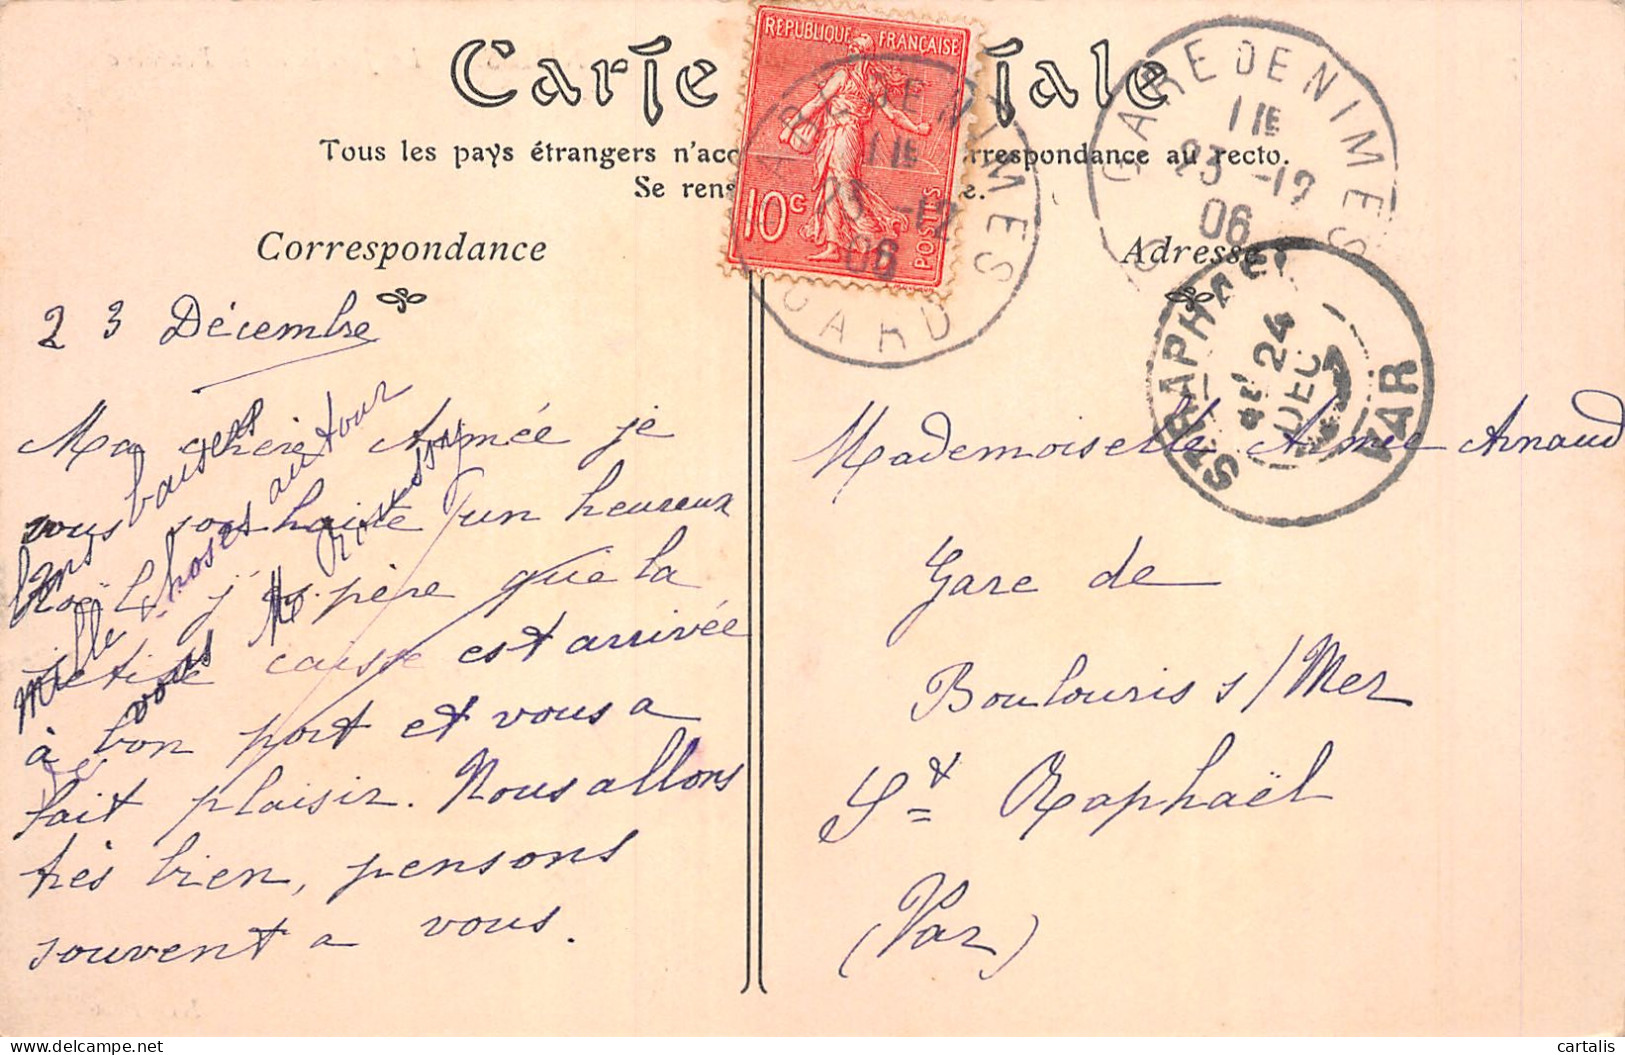 Carte
tale
REPUBLIQUE FRANÇAISE
10c
POSTES
GARE DE NIMES
GARD
1 1E
23 -12
06
GARE DE NIMES
1 1E
23 -12
06
Tous les pays étrangers n'acc rrespondance au recto.
Se rens e.
Correspondance
Adresse
ST RAPHAEL
24
DEC
VAR
23 Décembre
Ma chère Aimée je
vous souhaite un heureux
Noël j'espère que la
petite caisse est arrivée
à bon port et vous a
fait plaisir. Nous allons
très bien, pensons
souvent a vous.
bons baisers
mille choses autour
vous
Mademoiselle Aimée Arnaud
Gare de
Boulouris s/Mer
St Raphaël
(Var)
cartalis